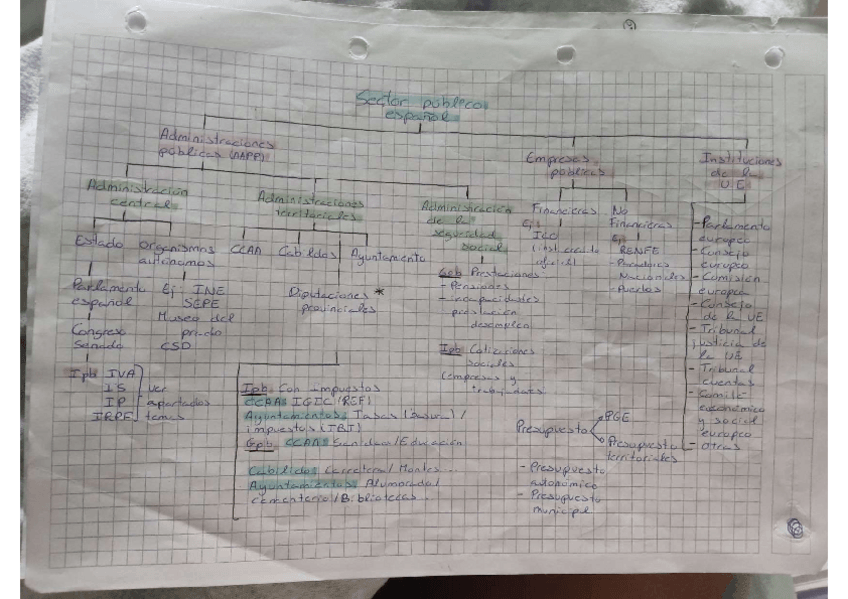 Sector público
español
Administraciones
públicas (AAPP)
Empresas
públicas
Instituciones
de la
UE
Administración
central
Administraciones
territoriales
Administración
de la
seguridad
social
Financieras
Ej:
ICO
(inst. crédito
oficial)
No
Financieras
Ej:
RENFE
- Paradores
Nacionales
- Puertos
- Parlamento
europeo
- Consejo
europeo
- Comisión
europea
- Consejo
de la UE
- Tribunal
justicia de
la UE
- Tribunal
cuentas
- Comité
económico
y social
europeo
- otras
Estado
Organismos
autónomos
CCAA
Cabildos
Ayuntamiento
Parlamento
español
Ej: INE
SEPE
Museo del
prado
CSD
Diputaciones *
provinciales
Congreso
Senado
Gpb Prestaciones
- Pensiones
- incapacidades
prestación
desempleo
Ipb Cotizaciones
sociales
(empresas y
trabajadores
Ipb IVA
IS
IP
IRPF
ver
apartados
temas
Ipb Con impuestos
CCAA: IGIC (REF)
Ayuntamientos: Tasas (basura) /
impuestos (IBI)
Gpb CCAA: Sanidad / Educación
Cabildos: Carreteras / Montes...
Ayuntamientos: Alumbrado /
cementerio / Bibliotecas...
Presupuesto
PGE
Presupuesto
territoriales
- Presupuesto
autonómico
- Presupuesto
municipal